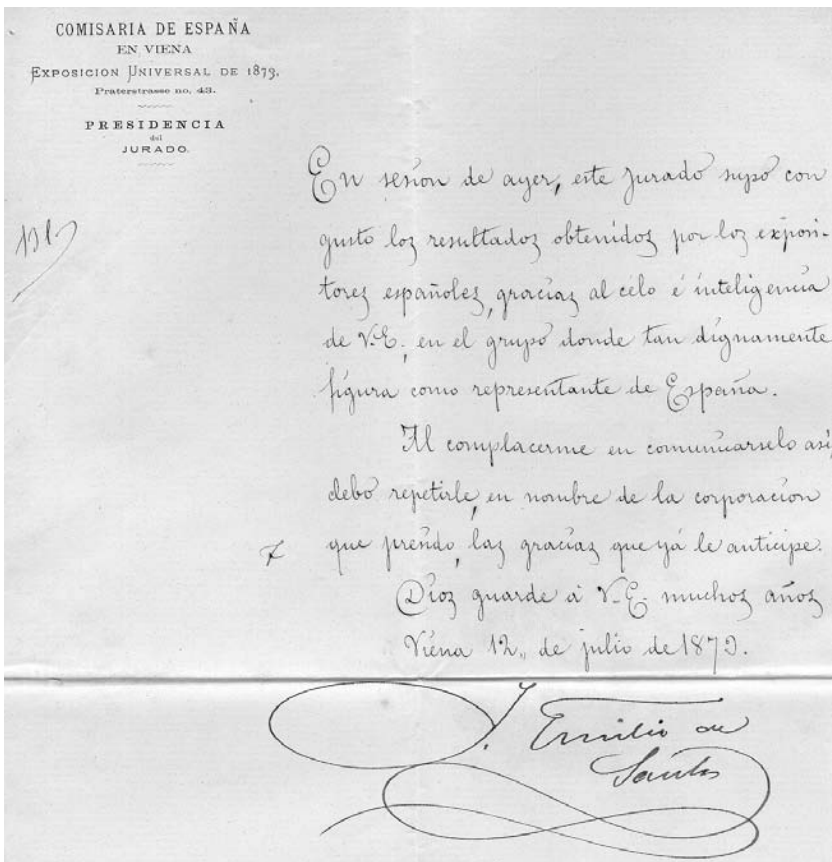 COMISARIA DE ESPAÑA
EN VIENA
EXPOSICION UNIVERSAL DE 1873,
Praterstrasse no. 43.
PRESIDENCIA
del
JURADO.
En sesion de ayer, este Jurado supó con
gusto los resultados obtenidos por los exposi-
tores españoles, gracias al célo é inteligencia
de V.E., en el grupo donde tan dignamente
figura como representante de España.
Al complacerme en comunicarselo así,
debo repetirle, en nombre de la corporacion
que presido, las gracias que yá le anticipe.
Dios guarde á V.E. muchos años
Viena 12,, de julio de 1873.
J. Emilio de
Santos